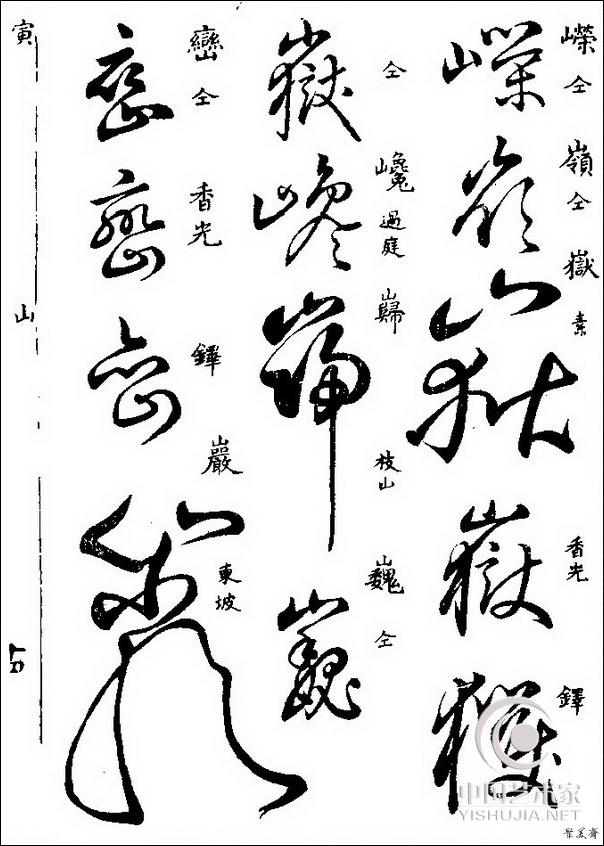 嶸 仝 嶺 仝 嶽 素 香光 鐸
仝 巉 過庭 巋 枝山 巍 仝
巒 仝 香光 鐸 巖 東坡
寅 山 五
中国艺术家
YISHUJIA.NET